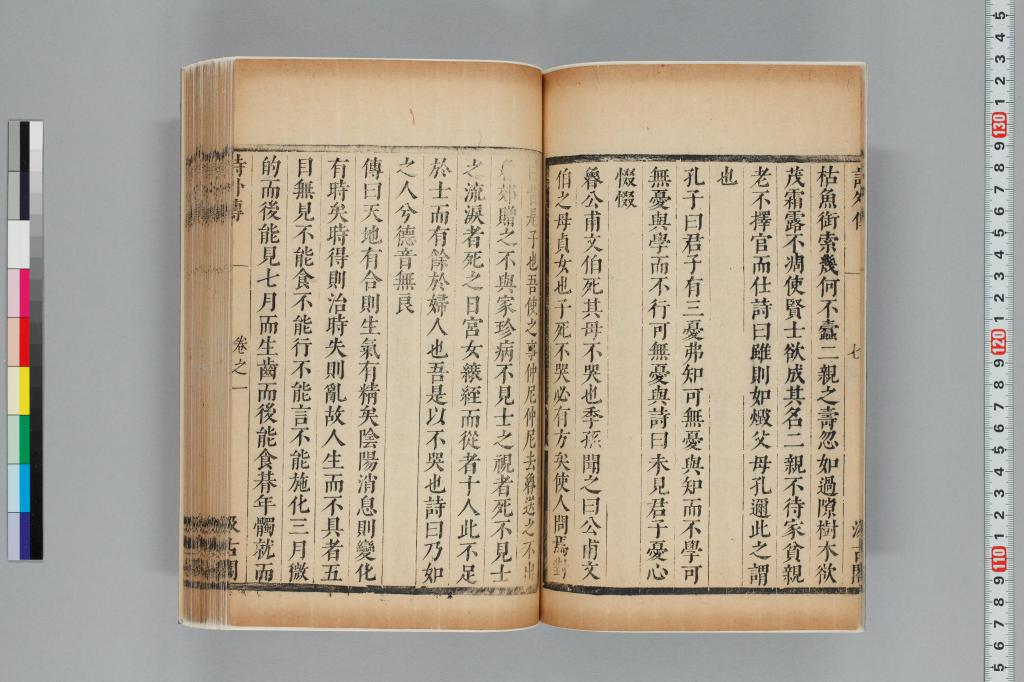 詩外傳
七
汲古閣
枯魚銜索幾何不蠹二親之壽忽如過隙樹木欲
茂霜露不凋使賢士欲成其名二親不待家貧親
老不擇官而仕詩曰雖則如燬父母孔邇此之謂
也
孔子曰君子有三憂弗知可無憂與知而不學可
無憂與學而不行可無憂與詩曰未見君子憂心
惙惙
魯公甫文伯死其母不哭也季孫聞之曰公甫文
伯之母貞女也子死不哭必有方矣使人問焉對
曰昔是子也吾使之事仲尼仲尼去魯送之不出
魯郊贈之不與家珍病不見士之視者死不見士
之流淚者死之日宮女縗絰而從者十人此不足
於士而有餘於婦人也吾是以不哭也詩曰乃如
之人兮德音無良
傳曰天地有合則生氣有精矣陰陽消息則變化
有時矣時得則治時失則亂故人生而不具者五
目無見不能食不能行不能言不能施化三月微
的而後能見七月而生齒而後能食朞年髑就而
詩外傳
卷之一
汲古閣
1 2 3 4 5
130
1 2 3 4 5 6 7 8 9
120
1 2 3 4 5 6 7 8 9
110
5 6 7 8 9